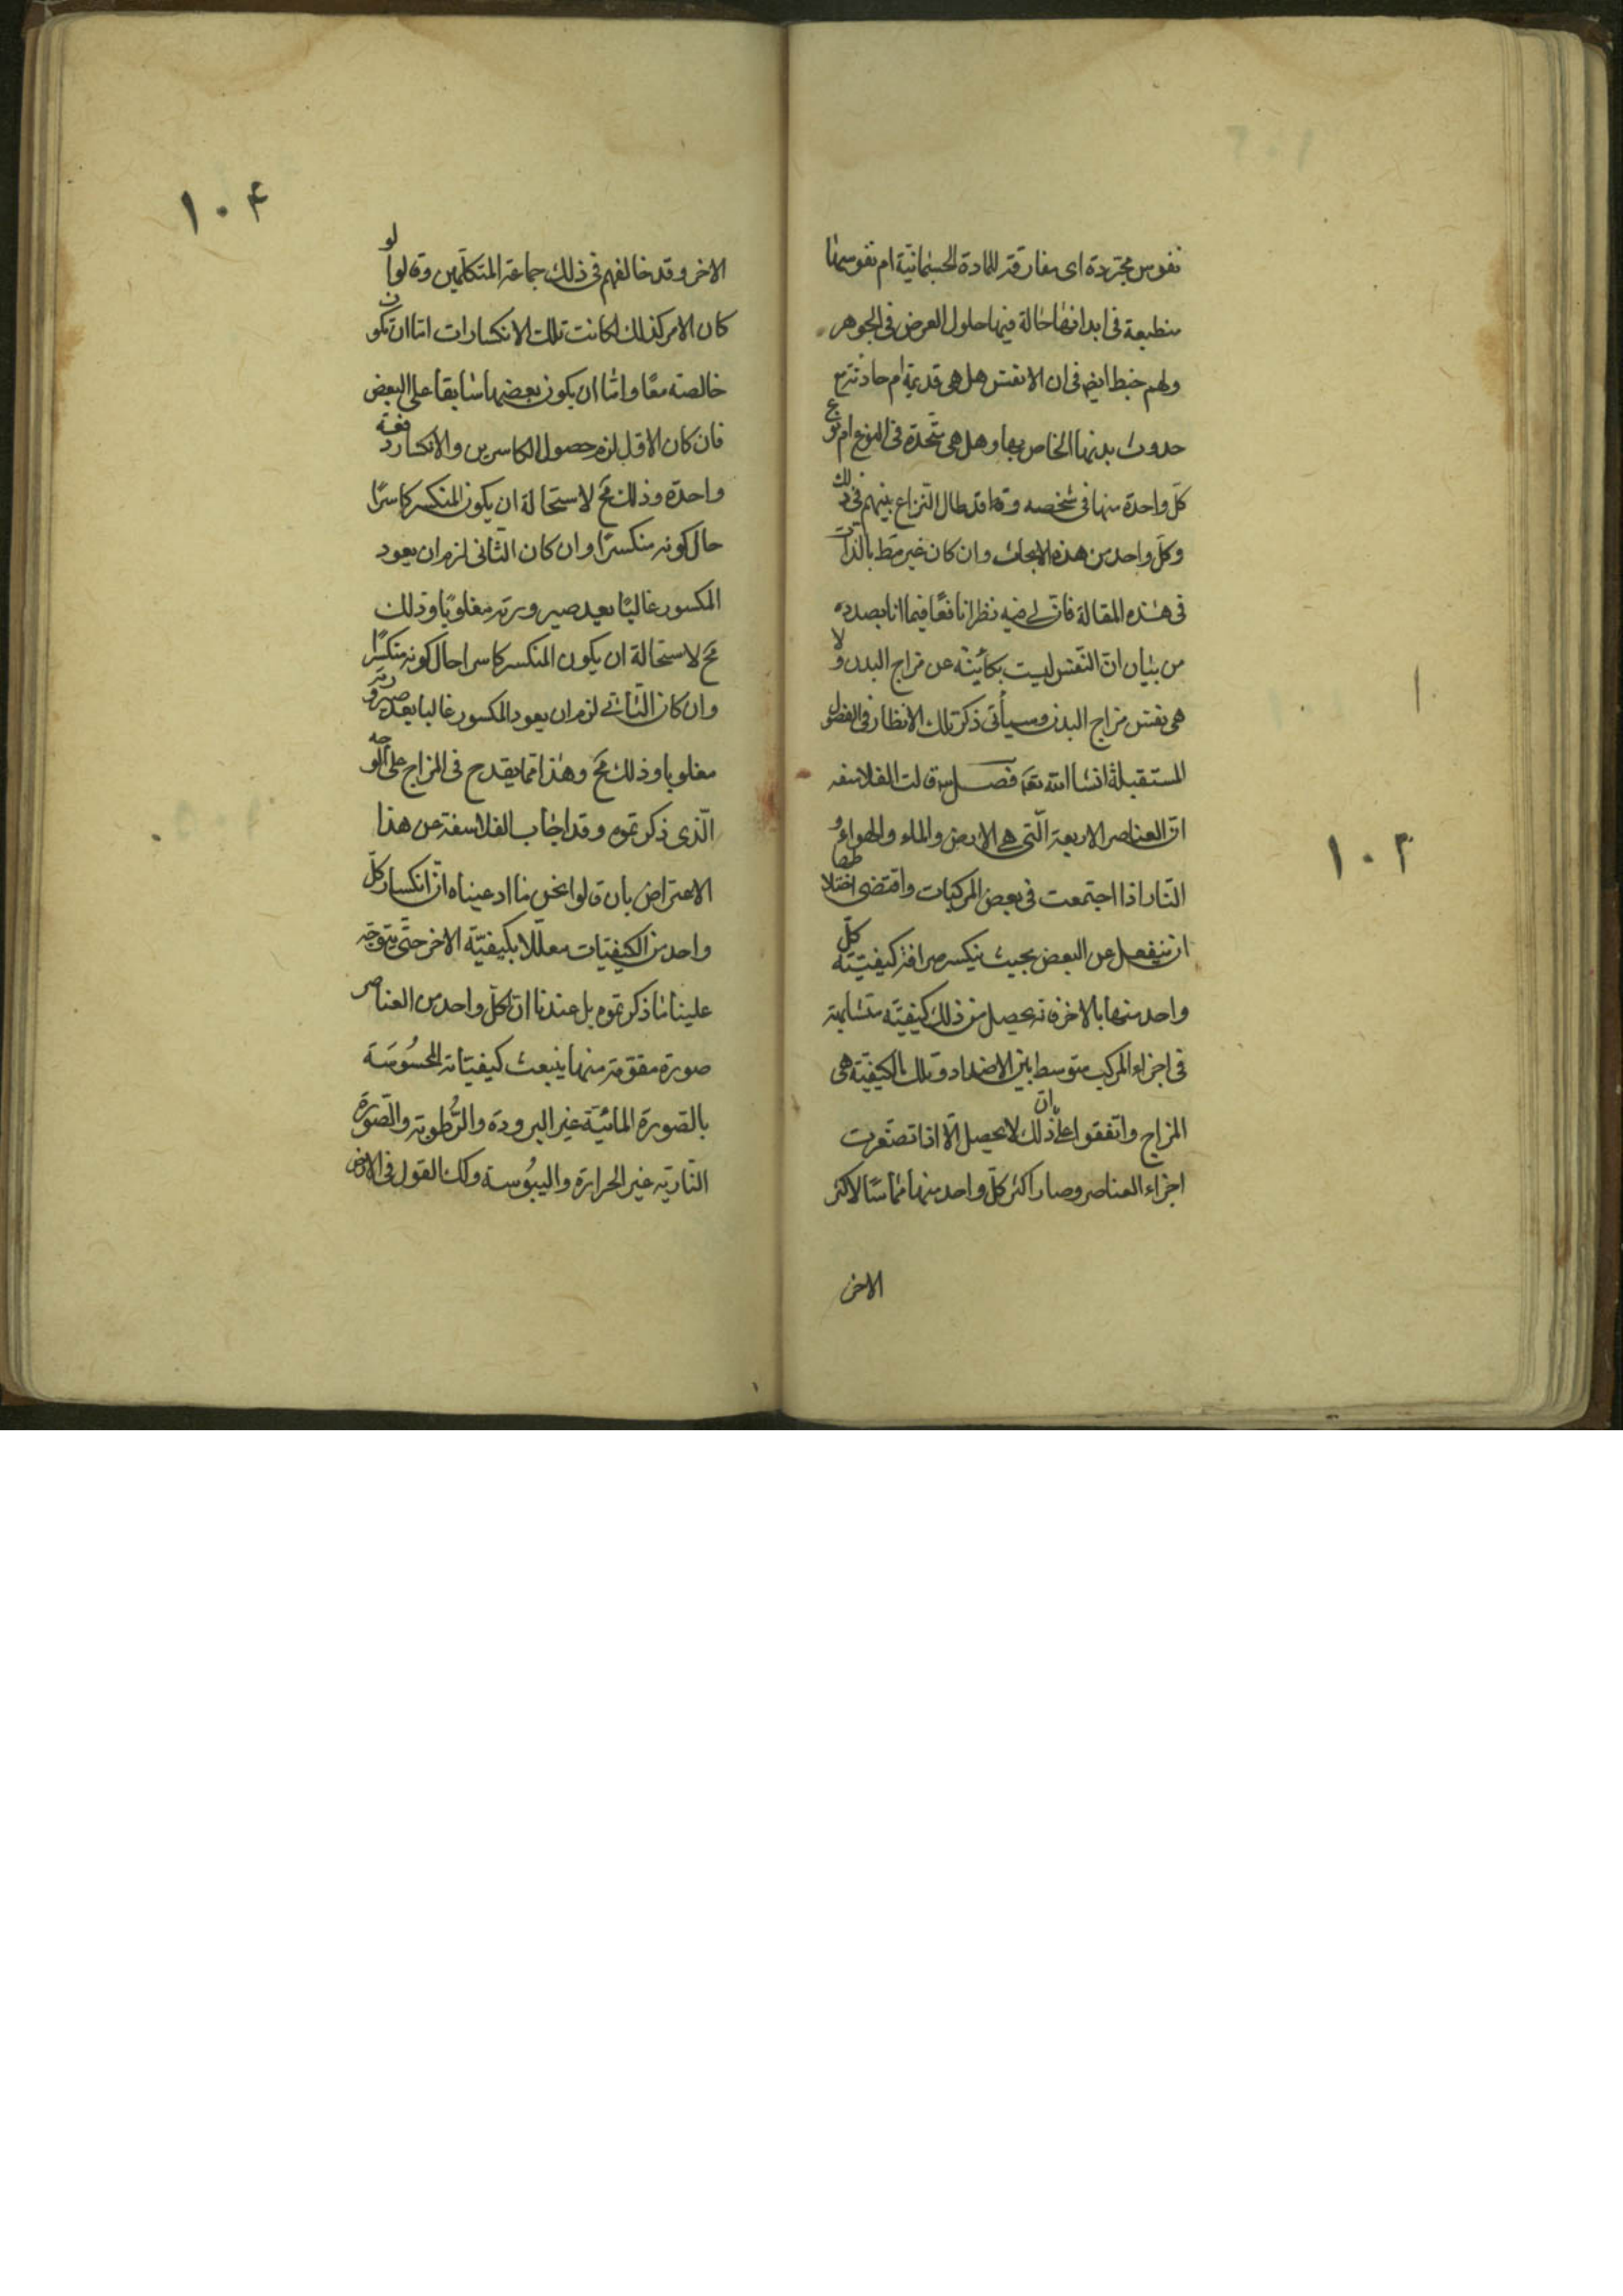 نفوس مجردة اى مفارقة للمادة الجسمانية ام نفوسنا
منطبعة فى ابدانها حالة فيها حلول العرض فى الجوهر
ولهم خبط ايض فى ان الانفس هل هى قديمة ام حادثة مع
حدوث بدنها الخاص بها وهل هى متحدة فى النوع ام نوع
كل واحدة منها فى شخصه وقد طال النزاع بينهم فى ذلك
وكل واحد من هذه الابحاث وان كان غير مط بالذات
فى هذه المقالة فان لى فيه نظرا نافعا فيما انا بصدده
من بيان ان النفس ليست بكائنة عن مزاج البدن ولا
هى نفس مزاج البدن وسيأتى ذكر تلك الانظار فى الفصول
المستقبلة انشا الله تعه فصل قالت الفلاسفه
ان العناصر الاربعة التى هى الارض والماء والهواء و
النار اذا اجتمعت فى بعض المركبات واقتضى اختلاطها
ان ينفعل عن البعض بحيث ينكسر صرافة كيفيته كل
واحد منها بالاخر فانه يحصل من ذلك كيفية متشابهة
فى اجزاء المركب متوسط بين الاضداد وتلك الكيفية هى
المزاج واتفقوا على ان ذلك لا يحصل الا اذا تصغرت
اجزاء العناصر وصار اكثر كل واحد منها مماسا لاكثر
الاخر
١٠٣
١٠۴
الاخر وقد خالفهم فى ذلك جماعة المتكلمين وقالوا لو
كان الامر كذلك لكانت تلك الانكسارات اما ان تكون
خالصة معا واما ان يكون بعضها سابقا على البعض
فان كان الاول لزم حصول الكاسرين والانكسار دفعة
واحدة وذلك مح لاستحالة ان يكون المنكسر كاسرا
حال كونه منكسرا وان كان الثانى لزم ان يعود
المكسور غالبا بعد صيرورته مغلوبا وذلك
مح لاستحالة ان يكون المنكسر كاسرا حال كونه منكسرا
وان كان الثانى لزم ان يعود المكسور غالبا بعد صيرورته
مغلوبا وذلك مح وهذا مما يقدح فى المزاج على الوجه
الذى ذكرتموه وقد اجاب الفلاسفة عن هذا
الاعتراض بان قالوا نحن ما ادعيناه ان انكسار كل
واحد من الكيفيات معللا بكيفية الاخر حتى يتوجه
علينا ما ذكرتموه بل عندنا ان لكل واحد من العناصر
صورة مقومة منها ينبعث كيفياته المحسوسة
بالصورة المائية غير البرودة والرطوبة والصورة
النارية غير الحرارة واليبوسة وكك القول فى الارض